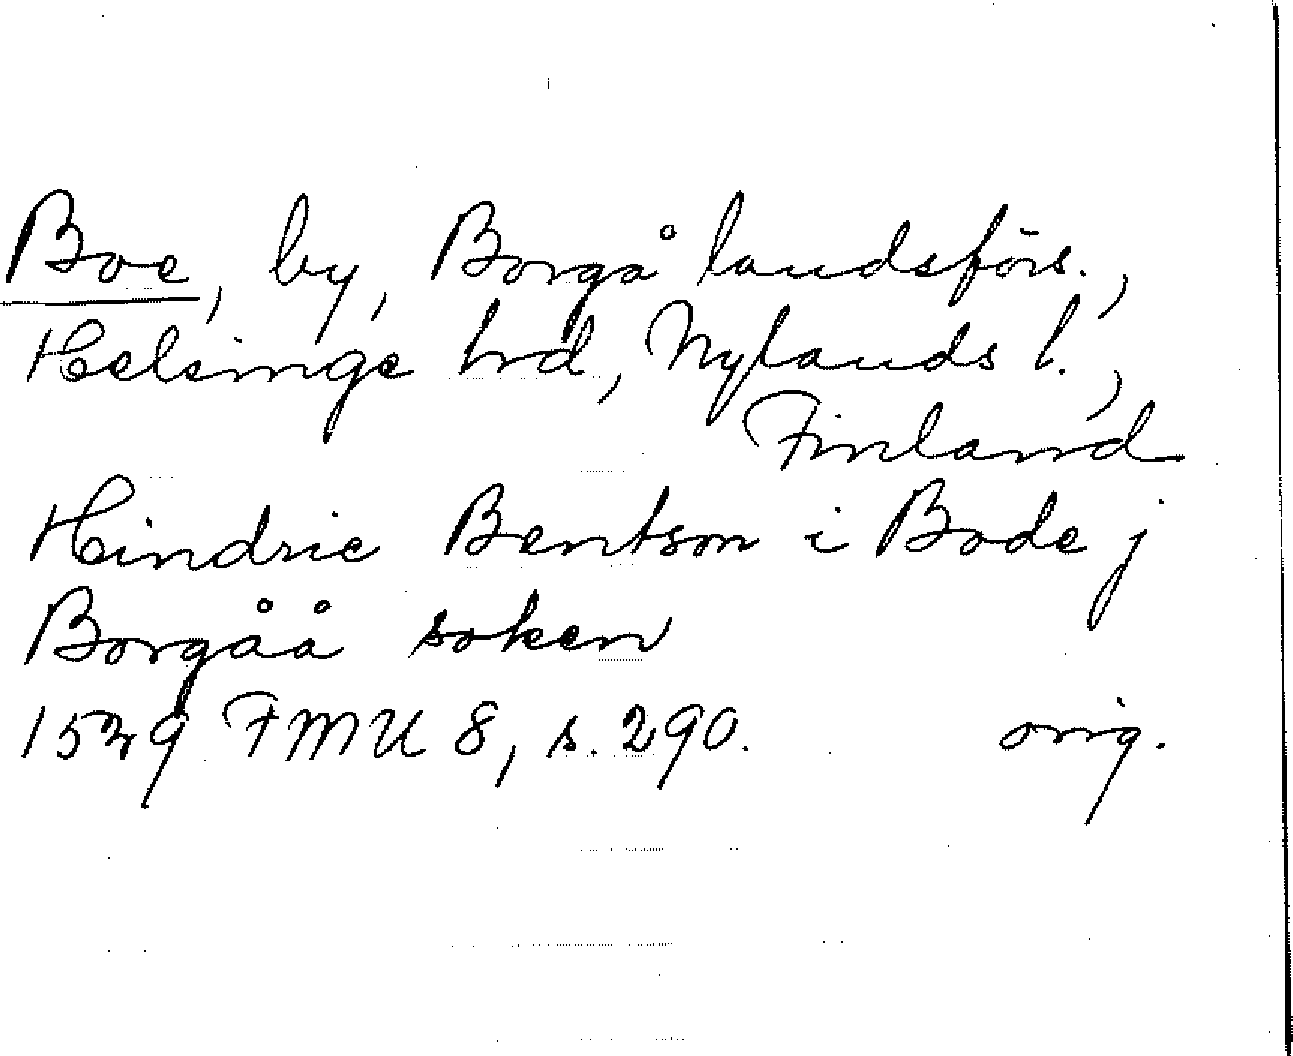 Boe, by, Borgå landsförs.,
Helsinge hrd, Nylands l.,
Finland
Hindric Bentson i Bode j
Borgåå soken
1539 FMU 8, s. 290. orig.